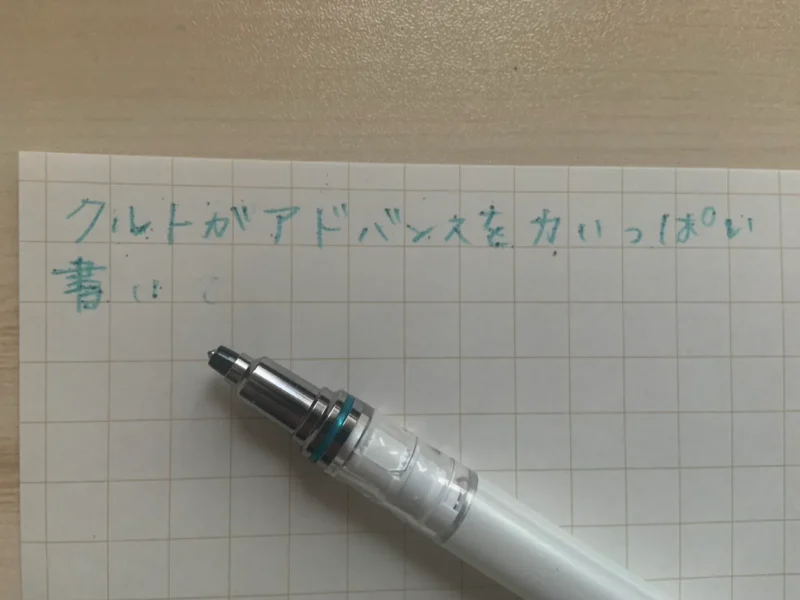 クルトガアドバンスを力いっぱい
書い